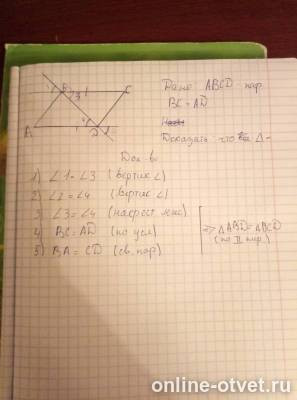 Дано ABCD - пар.
BC = AD
Доказать что Δ =
B C
A D
Док - во
1) ∠1 = ∠3 (вертик ∠)
2) ∠2 = ∠4 (вертик ∠)
3 ∠3 = ∠4 (накрест. леж)
4) BC = AD (по усл)
5) BA = CD (св. пар)
=> ΔABD = ΔBCD
(по II пар)
online-otvet.ru